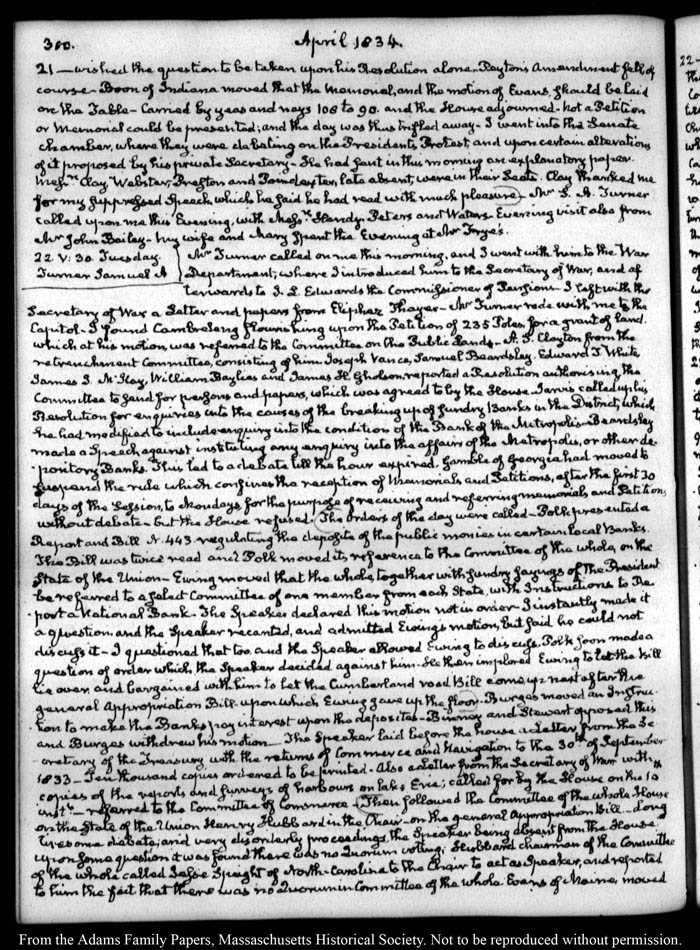 300.
April 1834.
21 — wished the question to be taken upon his Resolution alone. Peyton's Amendment fell of
course - Boon of Indiana moved that the Memorial, and the motion of Evans, should be laid
on the Table - Carried by yeas and nays 108 to 90. and the House adjourned - not a Petition
or Memorial could be presented; and the day was thus trifled away - I went into the Senate
chamber, where they were debating on the President's Protest, and upon certain alterations
of it proposed by his private Secretary - He had sent in this morning an explanatory paper.
Mess.rs Clay, Webster, Preston and Poindexter, late absent, were in their Seats. Clay thanked me
for my suppressed Speech, which he said he had read with much pleasure - Mr S. A. Turner
called upon me this Evening, with Mess.rs Handy Peters and Waters - Evening visit also from
Mr John Bailey - My wife and Mary spent the Evening at Mr Frye's.
22 V: 30. Tuesday.
Turner Samuel A
Mr Turner called on me this morning, and I went with him to the War
Department, where I introduced him to the Secretary of War, and af
terwards to J. L. Edwards the Commissioner of Pensions - I left with the
Secretary of War a Letter and papers from Eliphaz Thayer - Mr Turner rode with me to the
Capitol - I found Cambreleng flourishing upon the Petition of 235 Poles, for a grant of land.
which at his motion, was referred to the Committee on the Public Lands - A. S. Clayton from the
retrenchment Committee, consisting of him Joseph Vance, Samuel Beardsley, Edward D. White
James I. McKay, William Baylies and James H. Gholson, reported a Resolution authorising the
Committee to send for persons and papers, which was agreed to by the House - Jarvis called up his
Resolution for enquiries into the causes of the breaking up of sundry Banks in the District, which
he had modified to include enquiry into the condition of the Bank of the Metropolis - Beardsley
made a Speech against instituting any enquiry into the affairs of the Metropolis, or other de-
pository Banks. This led to a debate till the hour expired. Gamble of Georgia had moved to
suspend the rule which confines the reception of Memorials and Petitions, after the first 30
days of the Session, to Mondays for the purpose of receiving and referring memorials, and Petitions
without debate - but the House refused. The orders of the day were called - Polk presented a
Report and Bill N. 443. regulating the deposits of the public monies in certain local Banks.
The Bill was twice read and Polk moved its reference to the Committee of the whole, on the
State of the Union - Ewing moved that the whole, together with sundry sayings of The President
be referred to a select Committee of one member from each State, with Instructions to Re-
port a National Bank - The Speaker declared this motion not in order - I instantly made it
a question, and the Speaker recanted, and admitted Ewing's motion, but said he could not
discuss it - I questioned that too and the Speaker allowed Ewing to discuss. Polk soon made a
question of order which the Speaker decided against him - He then implored Ewing to let the bill
lie over, and bargained with him to let the Cumberland road Bill come up next after the
general Appropriation Bill. upon which Ewing gave up the floor - Burges moved an Instruc-
tion to make the Banks pay interest upon the deposites - Binney and Stewart opposed this
and Burges withdrew his motion - The Speaker laid before the house a Letter from the Se
cretary of the Treasury with the returns of Commerce and Navigation to the 30th of September
1833 - Ten thousand copies ordered to be printed - Also a Letter from the Secretary of War with
copies of the reports and surveys of harbours on lake Erie; called for by the House on the 10
inst.t - referred to the Committee of Commerce - Then followed the Committee of the whole House
on the State of the Union Henry Hubbard in the Chair - on the general Appropriation Bill - long
tiresome debate, and very disorderly proceedings, the Speaker being absent from the House
upon some question it was found there was no Quorum voting: Hubbard chairman of the Committee
of the whole called Jesse Speight of North-Carolina to the Chair to act as Speaker, and reported
to him the fact that there was no Quorum in Committee of the whole. Evans of Maine, moved
From the Adams Family Papers, Massachusetts Historical Society. Not to be reproduced without permission.